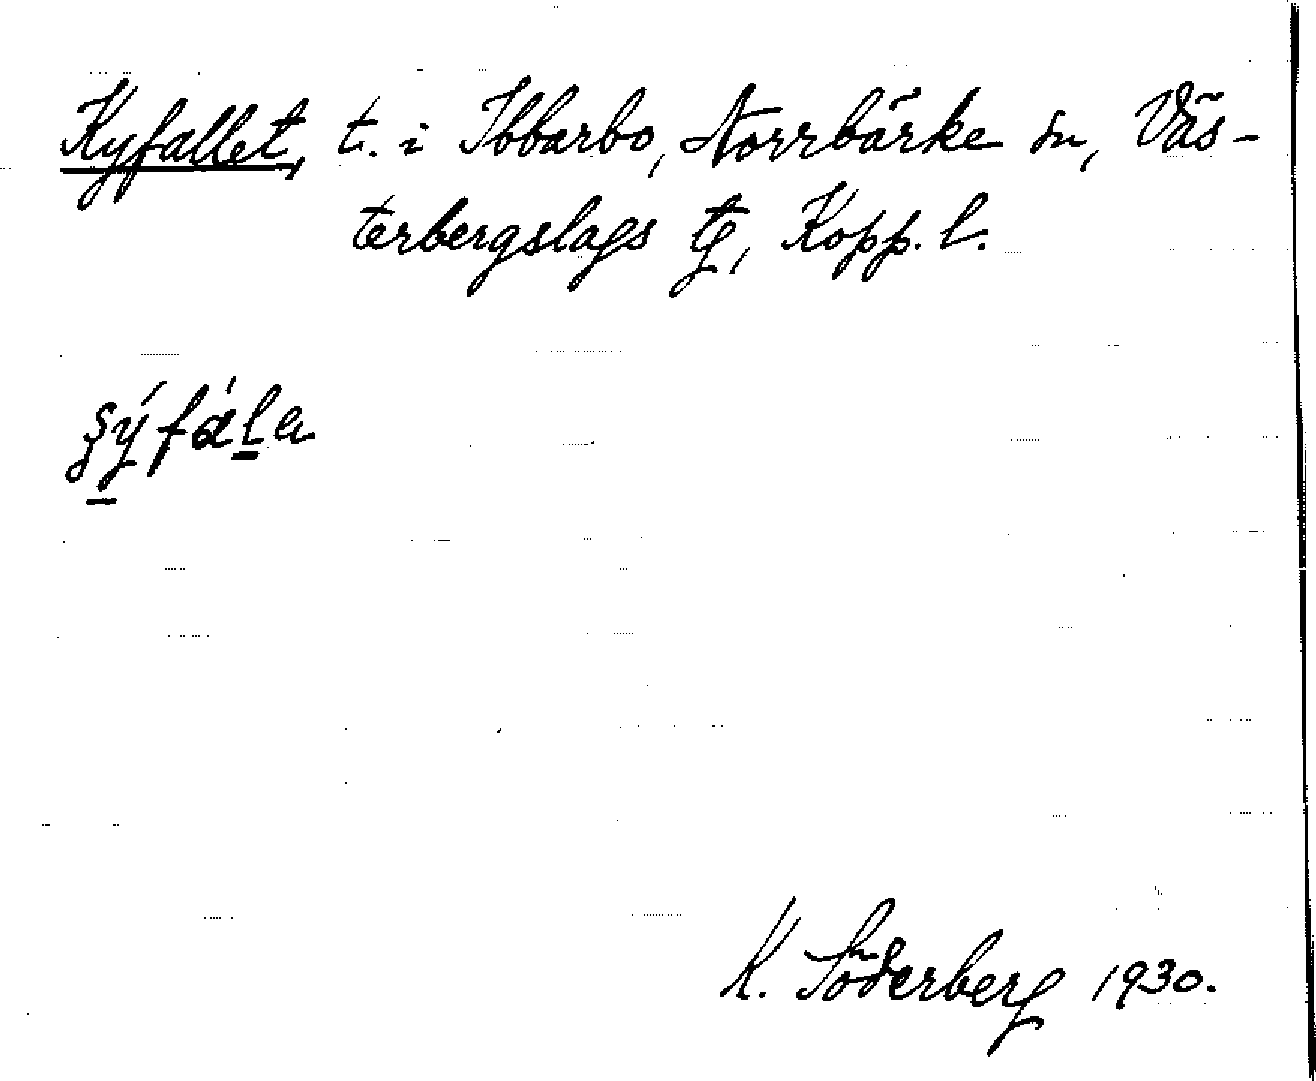 Kyfallet, t. i Ibbarbo, Norrbärke sn, Väs-
terbergslags tg, Kopp. l.
K. Söderberg 1930.